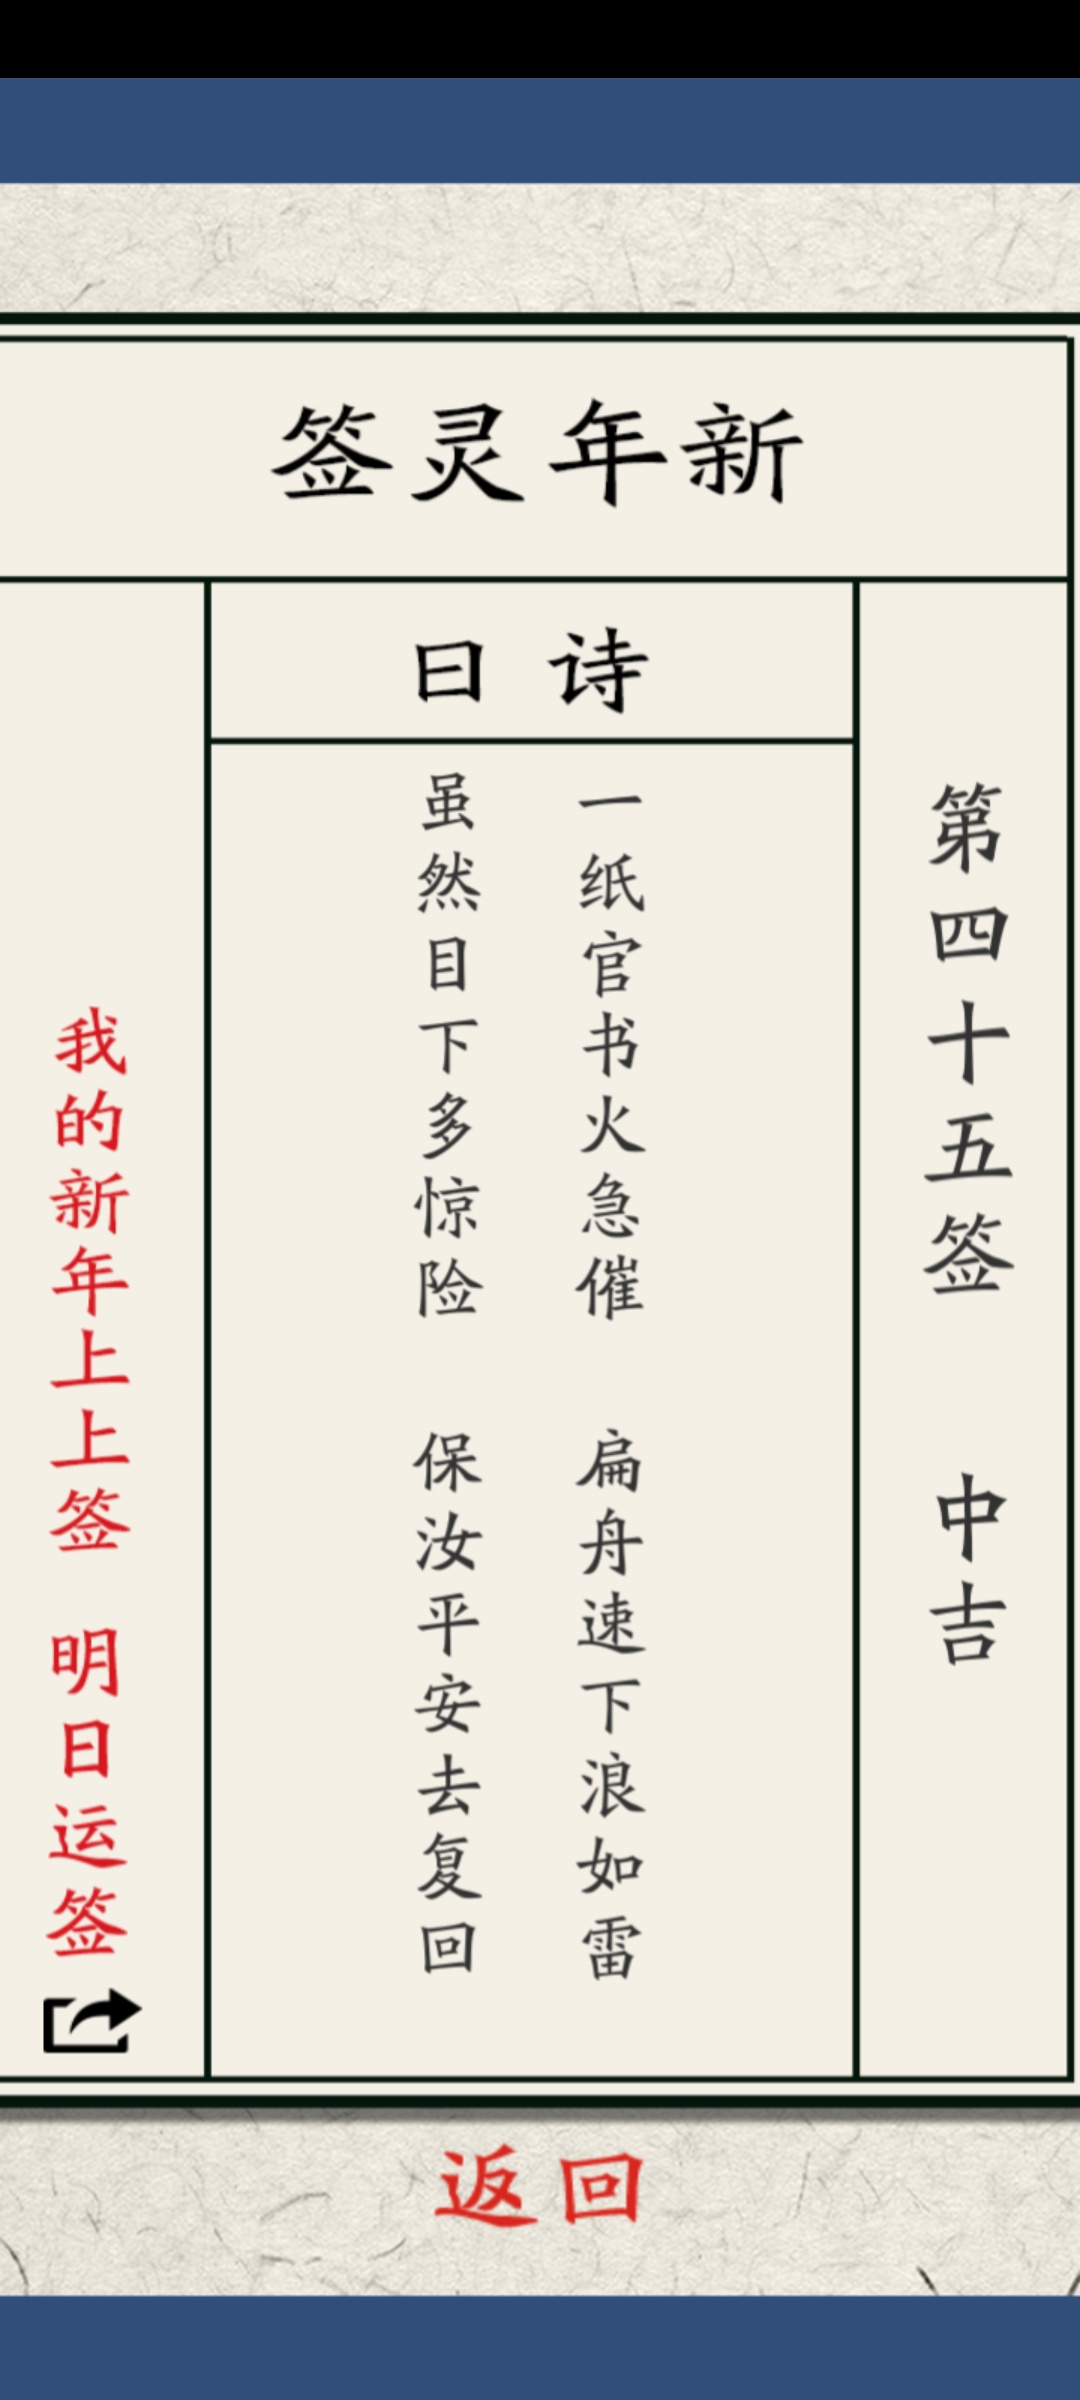 新年灵签
诗曰
第四十五签 中吉
一纸官书火急催 扁舟速下浪如雷
虽然目下多惊险 保汝平安去复回
我的新年上上签 明日运签
返回